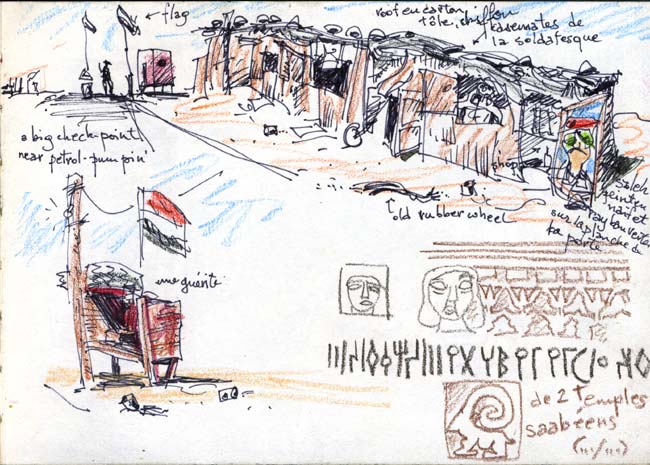 flag
roof en carton
tôle, chiffon
kasemates de
la soldatesque
a big check-point
near petrol-pumpin'
shop
old rubber wheel
Saleh
peint en
naïf et
ray ban vertes
sur la planche de
la porte
une guérite
de 2 temples
saabéens